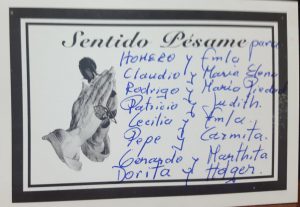 Sentido Pésame para
HOMERO y Fmla
Claudio y Maria Elena
Rodrigo y Maria Piedad
Patricio y Judith.
Cecilia y Fmla.
Pepe y Carmita.
Gerardo y Marthita
Dorita y Hager.